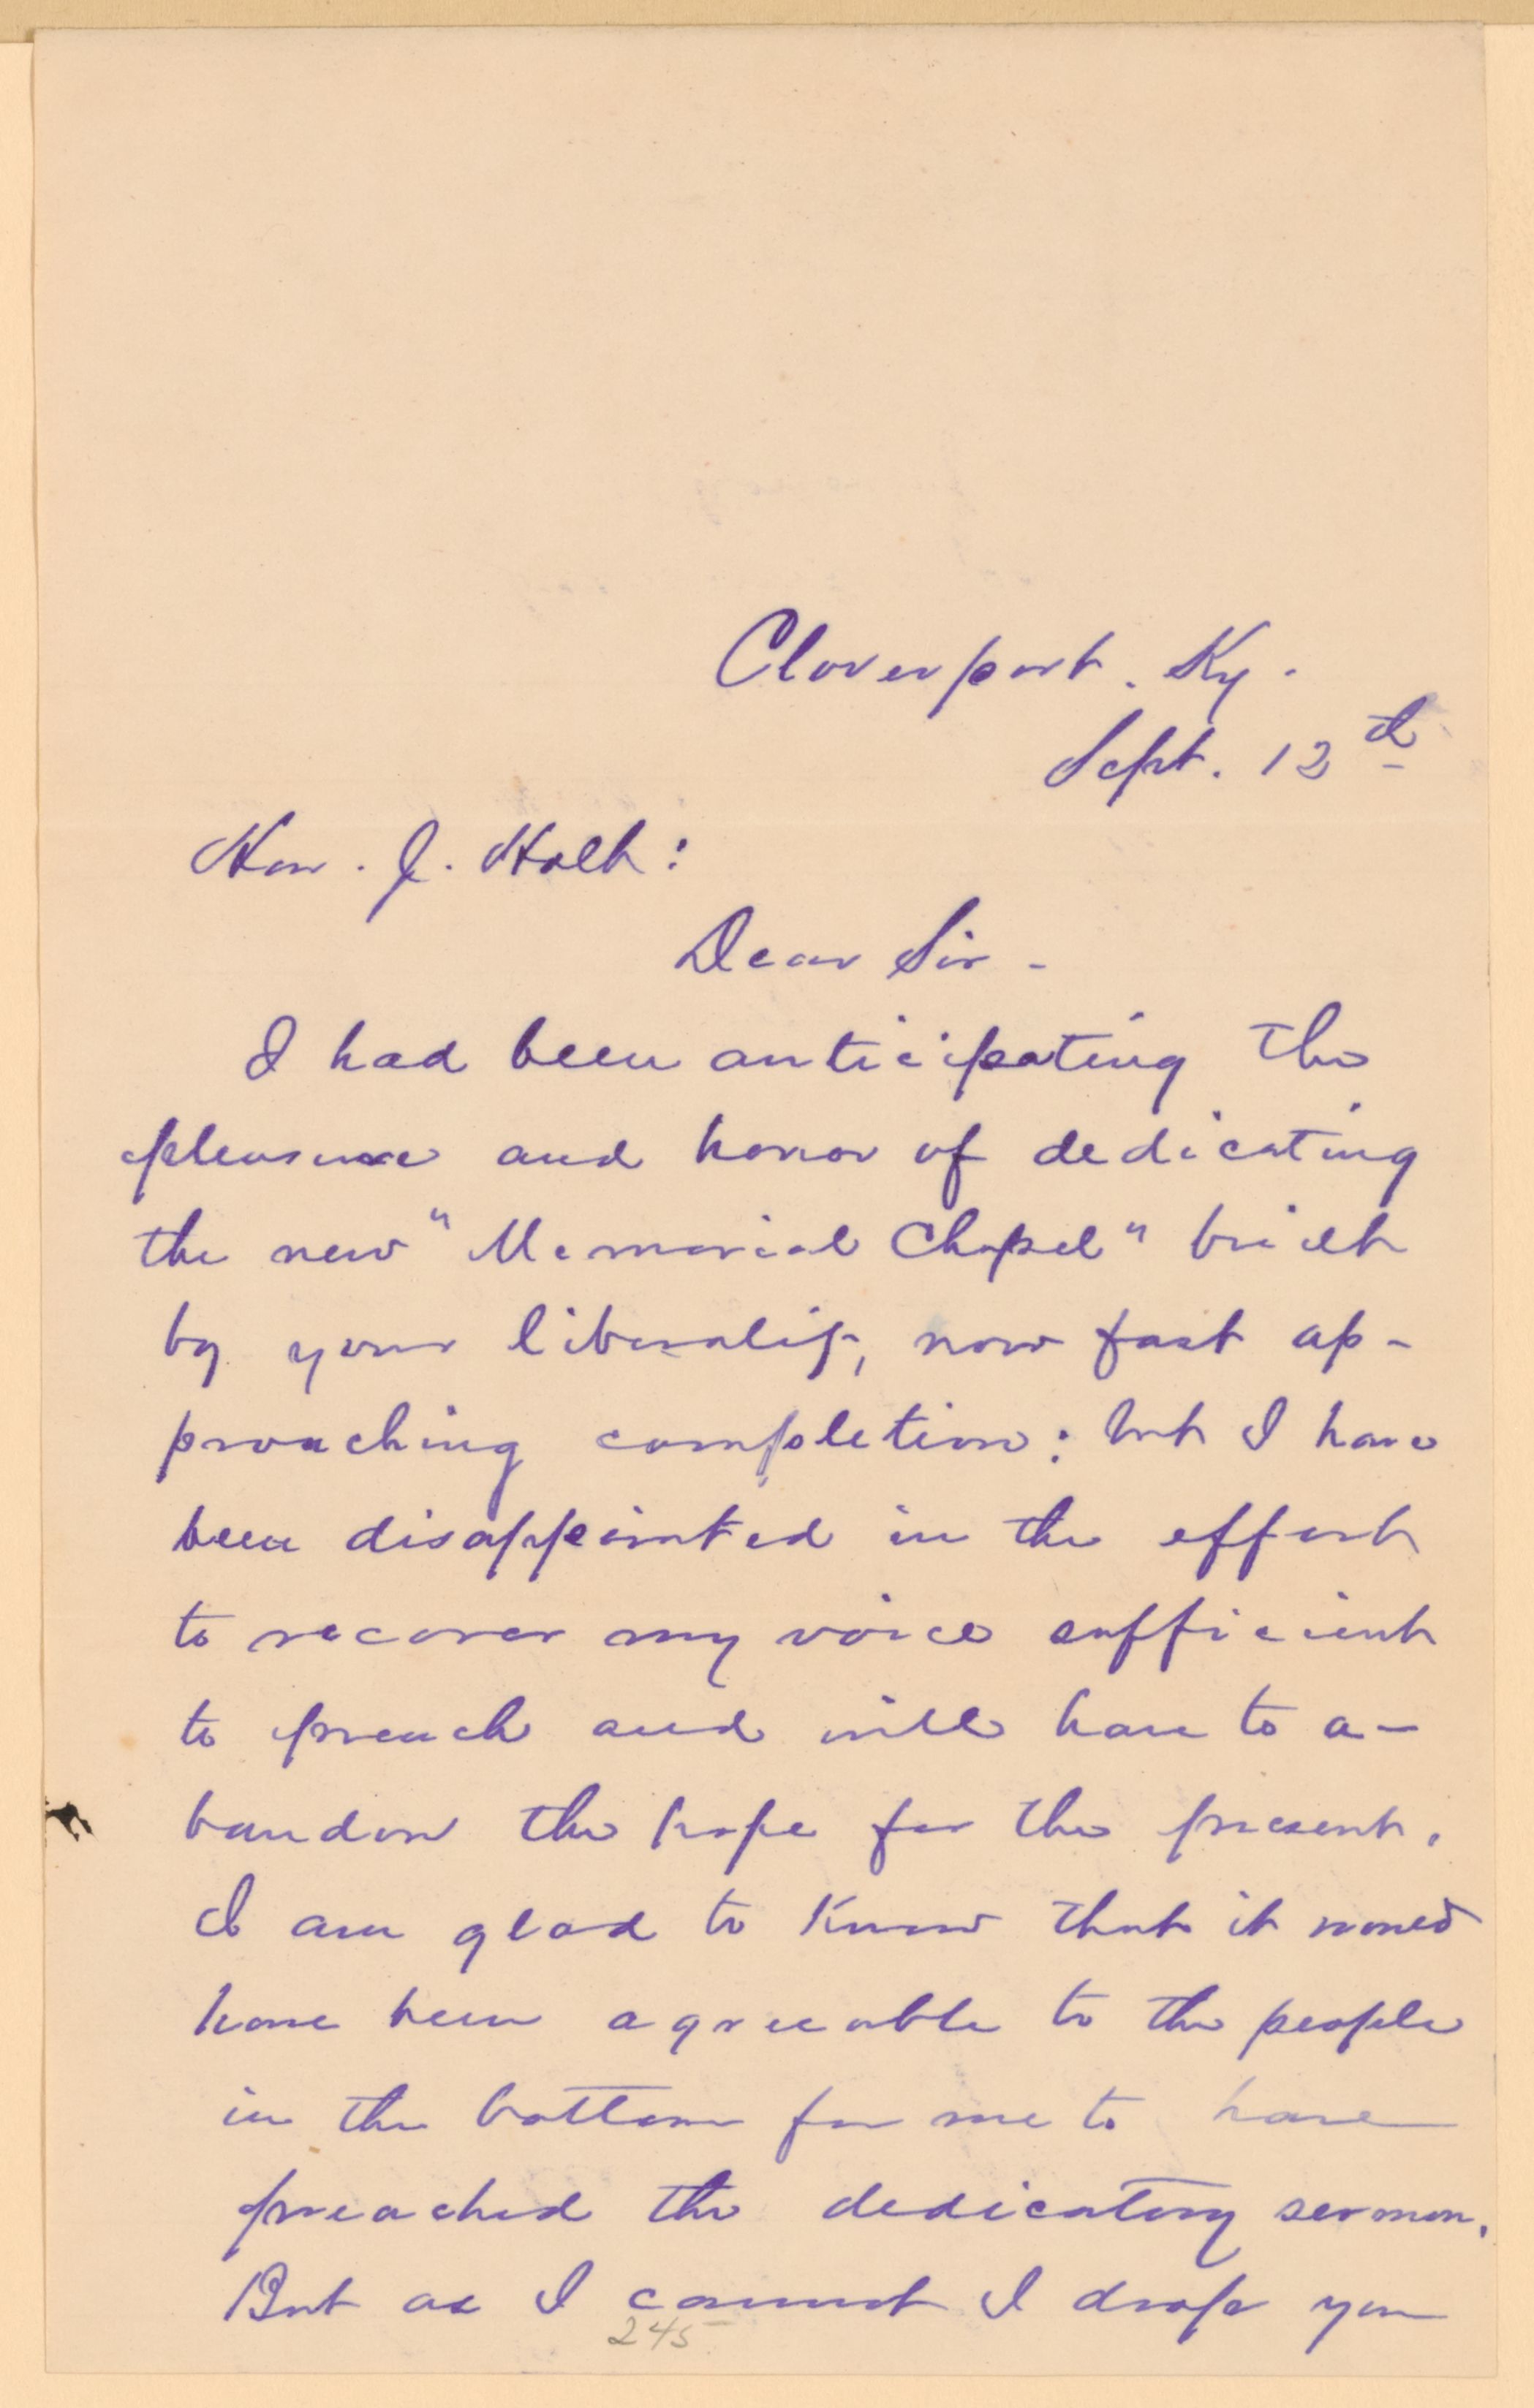 Cloverport. Ky.
Sept. 12th
Hon. J. Holt:
Dear Sir -
I had been anticipating the
pleasure and honor of dedicating
the new "Memorial Chapel" built
by your liberality, now fast ap-
proaching completion: but I have
been disappointed in the effort
to recover my voice sufficient
to preach and will have to a-
bandon the hope for the present.
I am glad to know that it would
have been agreeable to the people
in the bottom for me to have
preached the dedicatory sermon.
But as I cannot I drop you
245